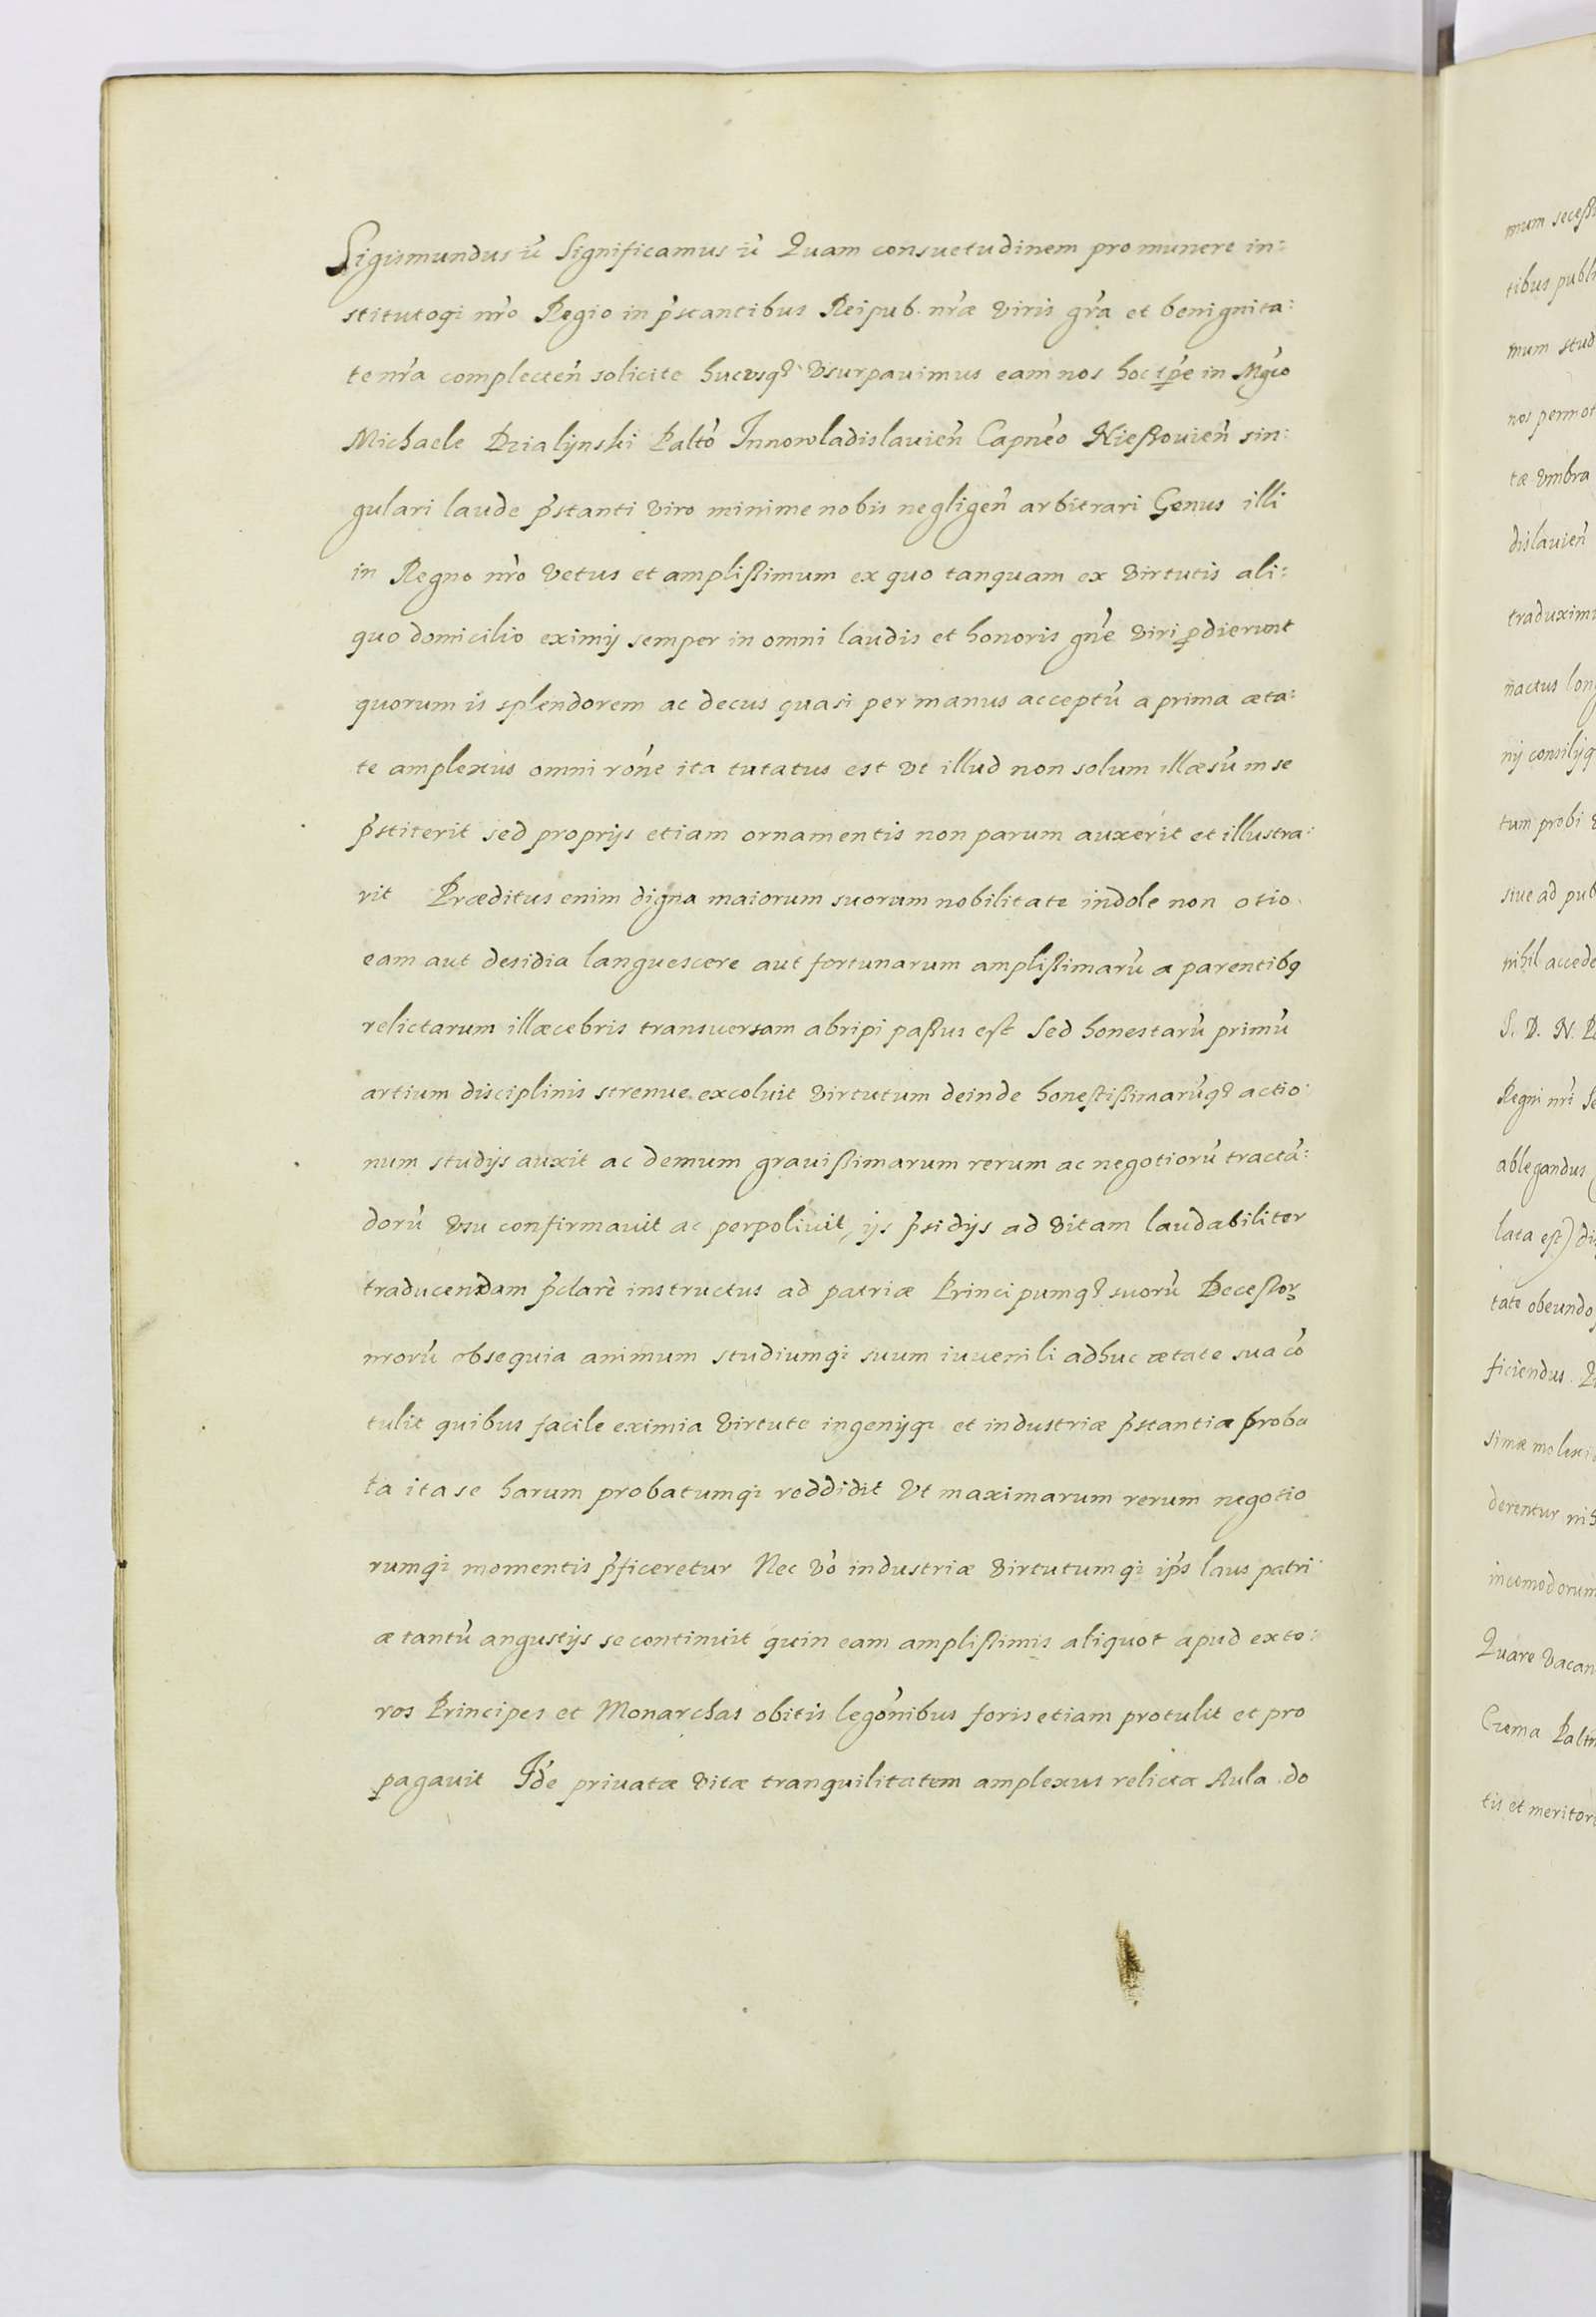 Sigismundus ĩc Significamus ĩc Quam consuetudinem pro munere in:
stitutoq; nr̃o Regio in p̃stantibus Reipub. nr̃æ viris gr̃a et benignita:
te nr̃a complecteñ solicite hucusq; vsurpauimus eam nos hoc tp̃e in Mgc̃o
Michaele Dzialijnski Paltõ Innowladislauieñ Capnẽo Nießouieñ sin:
gulari laude p̃stanti viro minime nobis negligeñ arbitrari Genus illi
in Regno nr̃o vetus et amplißimum ex quo tanquam ex virtutis ali:
quo domicilio eximij semper in omni laudis et honoris gñe viri ꝓdierunt
quorum is splendorem ac decus quasi per manus acceptũ a prima æta:
te amplexus omni rõne ita tutatus est vt illud non solum illæsũ in se
p̃stiterit sed proprijs etiam ornamentis non parum auxerit et illustra:
rit Præditus enim digna maiorum suorum nobilitate indole non otio
eam aut desidia languescere aut fortunarum amplißimarũ a parentibq
relictarum illæcebris transuersam abripi paßus est Sed honestarũ primũ
artium disciplinis strenue excoluit virtutum deinde honestißimarũq; actio
num studijs auxit ac demum grauißimarum rerum ac negotiorũ tractã:
dorũ vsu confirmauit ac perpoliuit, ijs p̃sidijs ad vitam laudabiliter
traducendam p̃clarè instructus ad patriæ Principumq; suorũ Deceßoꝝ
nr̃orũ obsequia animum studiumq; suum iuuenili adhuc ætate sua cõ
tulit quibus facile eximia virtute ingenijq; et industriæ p̃stantia proba
ta ita se harum probatumq; reddidit vt maximarum rerum negotio
rumq; momentis p̃ficeretur Nec võ industriæ virtutumq; ip̃s laus patri
æ tantũ angustijs se continuit quin eam amplißimis aliquot apud exte:
ros Principes et Monarchas obitis legõnibus foris etiam protulit et pro
pagauit Idẽ priuatæ vitæ tranquilitatem amplexus relicta Aula do
mum
tibus
mum
nos
tæ vmbra
dislauieñ
nactus
tum probi
stue ad
S. D. N.
Regni nr̃i
ablegandus
lata est)
tate
ficiendus
derentur
Quare
tis et